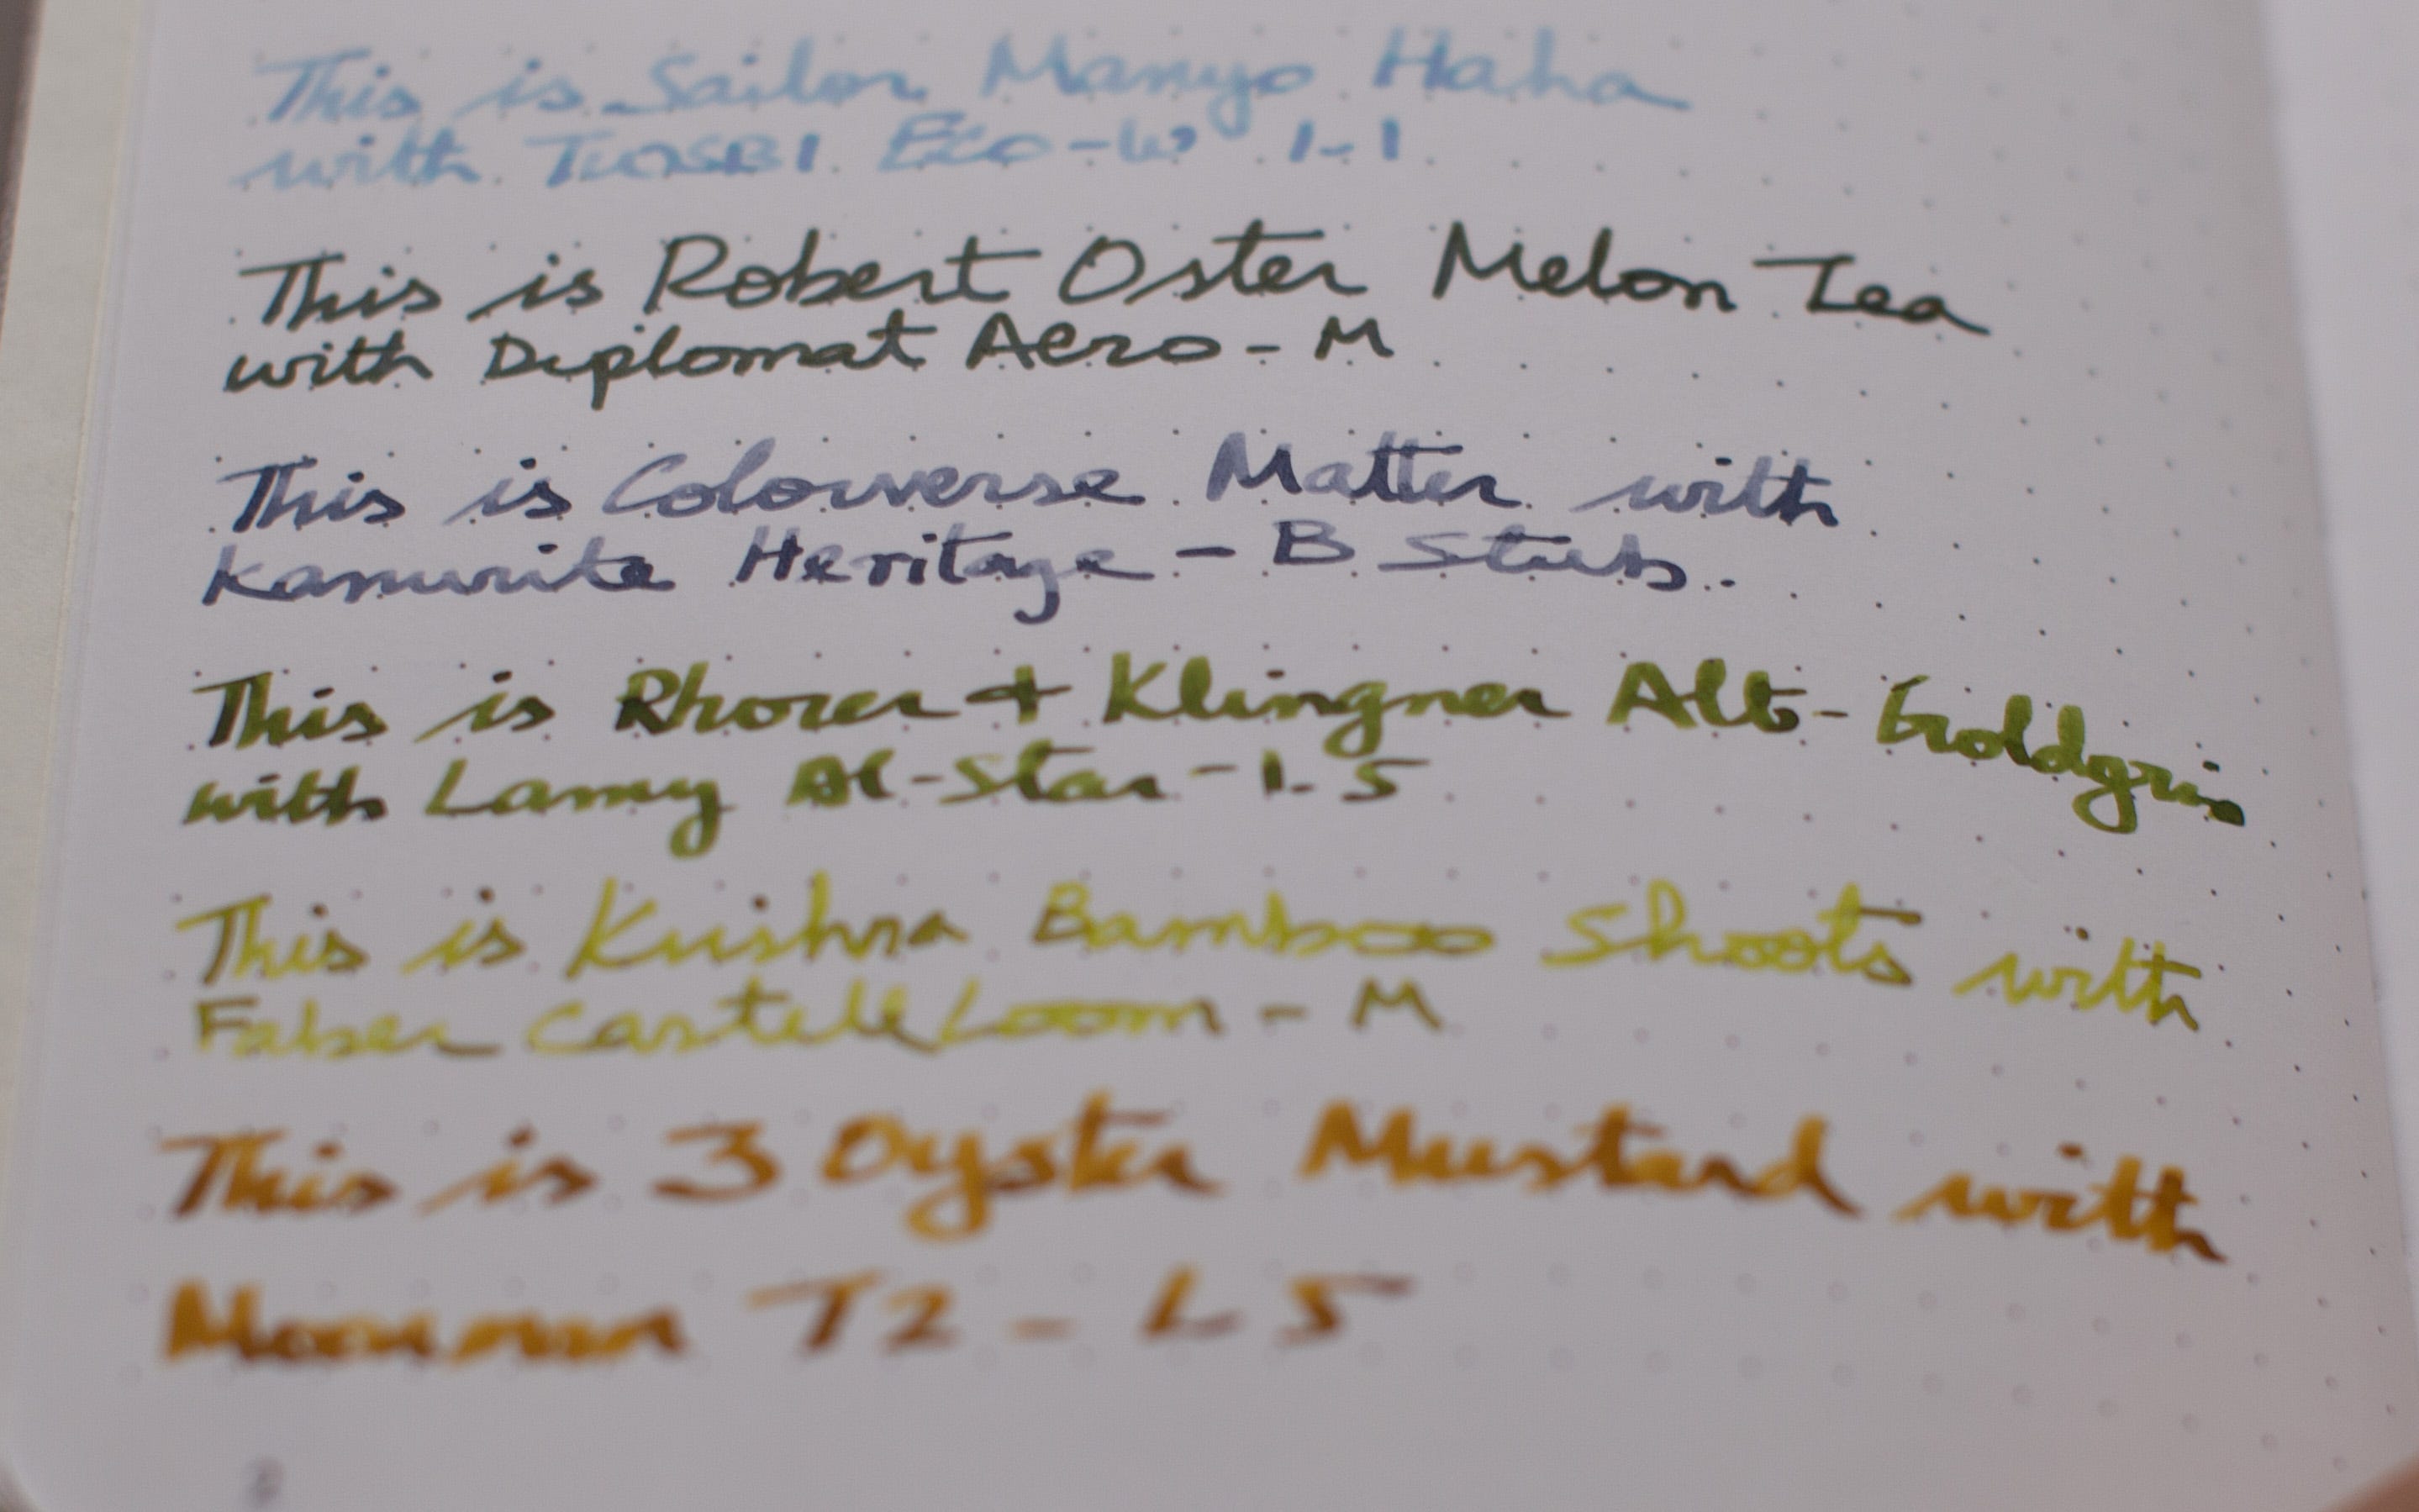 This is Sailor Manyo Haha
with TWSBI Eco-W 1.1
This is Robert Oster Melon Tea
with Diplomat Aero - M
This is Colorverse Matter with
Kanwrite Heritage - B Stub.
This is Rhorer + Klingner Alt-Goldgrün
with Lamy Al-Star - 1.5
This is Krishna Bamboo Shoots with
Faber Castell Loom - M
This is 3 Oyster Mustard with
Moonman T2 - 1.5